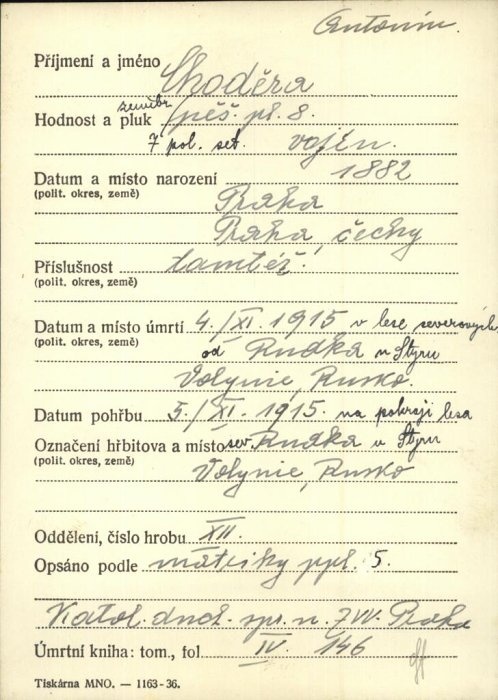 Antonín.
Příjmení a jméno Choděra
Hodnost a pluk zeměbr. pěš. pl. 8.
7 pol. set. vojín.
Datum a místo narození 1882
(polit. okres, země) Praha
Praha, čechy
Příslušnost tamtéž.
(polit. okres, země)
Datum a místo úmrtí 4./XI. 1915 v lese severových.
(polit. okres, země) od Rudka u Styru
Volynie, Rusko.
Datum pohřbu 5./XI. 1915. na pokraji lesa
Označení hřbitova a místo sev. Rudka u Styru
(polit. okres, země) Volynie, Rusko
Oddělení, číslo hrobu XII.
Opsáno podle matriky ppl. 5.
Katol. duch. spr. n. 7 VV. Praha
Úmrtní kniha: tom., fol. IV. 146
Tiskárna MNO. — 1163-36.